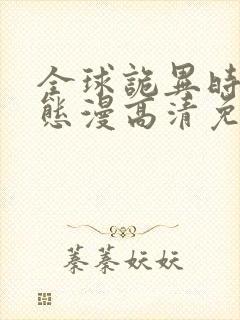 全球詭異時
態漫高清免
蓁蓁妖妖